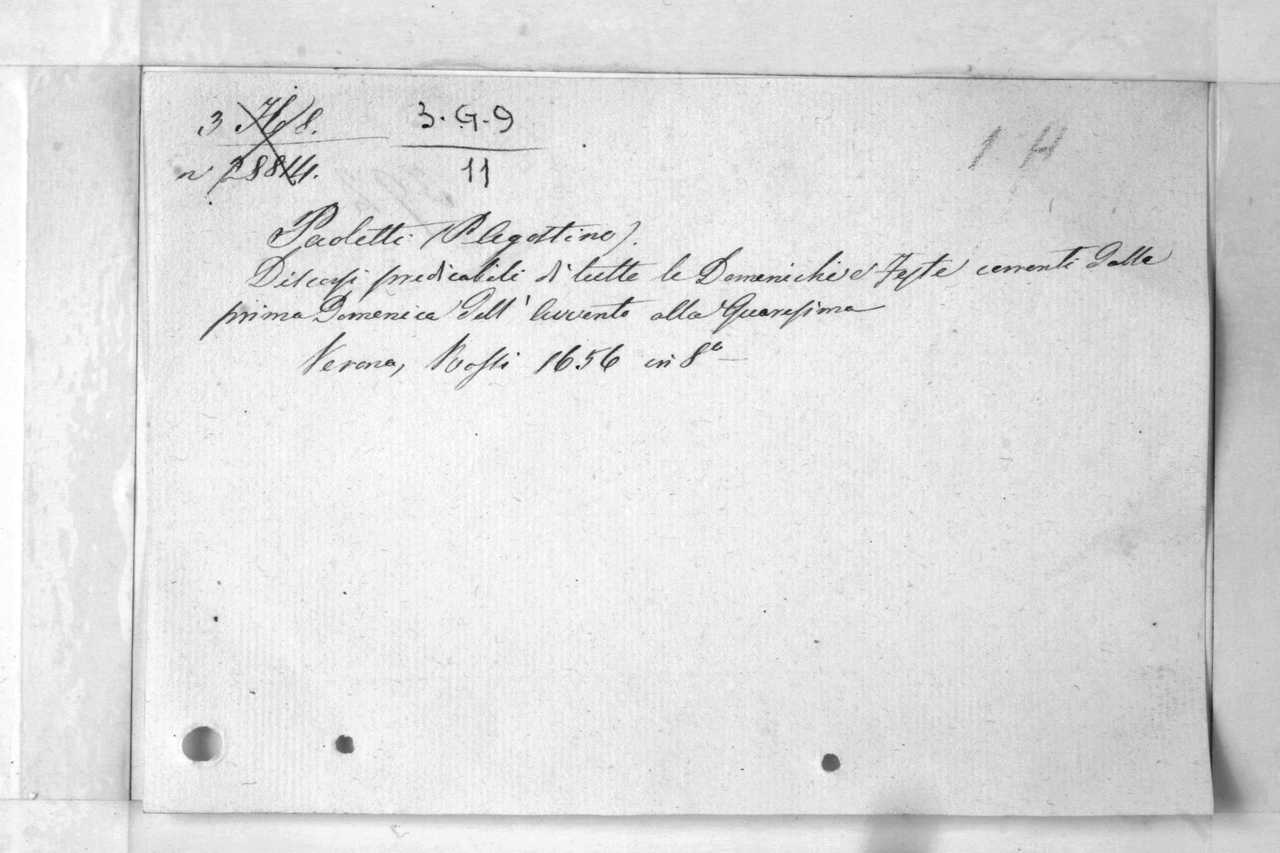 3 H 8. 3. G. 9
n 2884. 11
1 H
Paoletti (P. Agostino).
Discorsi predicabili di tutte le Domeniche e Feste correnti dalla
prima Domenica dell' Avvento alla Quaresima
Verona, Rossi 1656 in 8º